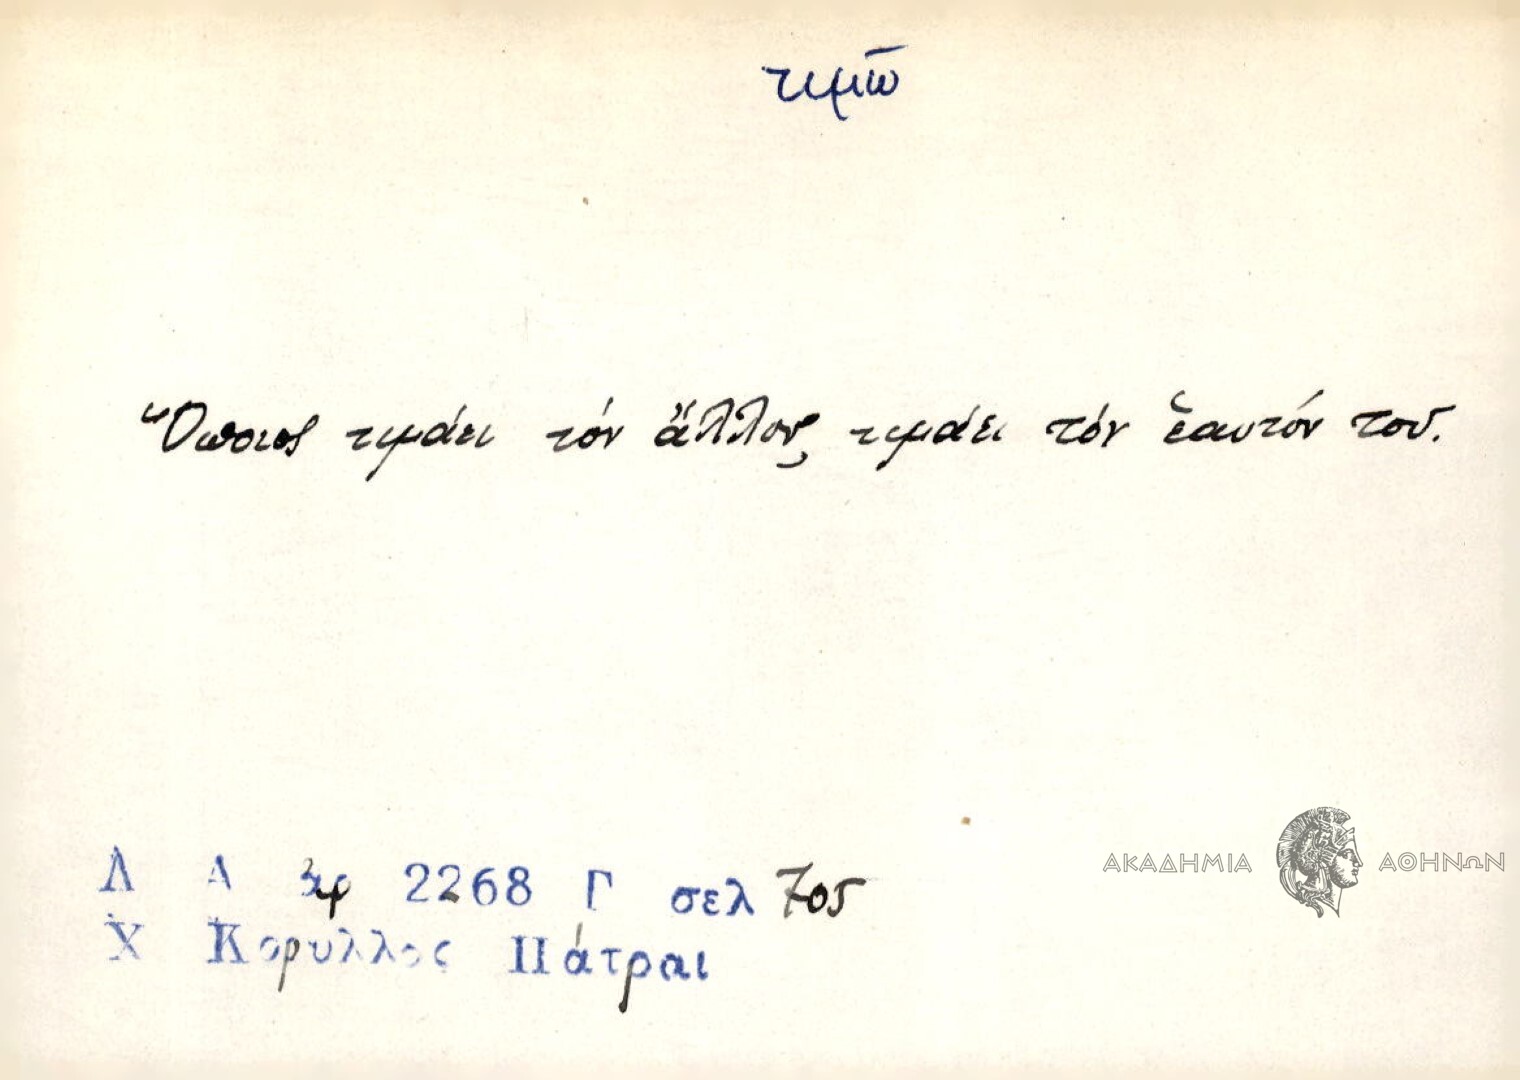 τιμῶ
Ὅποιος τιμάει τόν ἄλλονς τιμάει τόν ἑαυτόν του.
Λ Α ἀρ 2268 Γ σελ 705
Χ Κορύλλος Πάτραι
ΑΚΑΔΗΜΙΑ ΑΘΗΝΩΝ